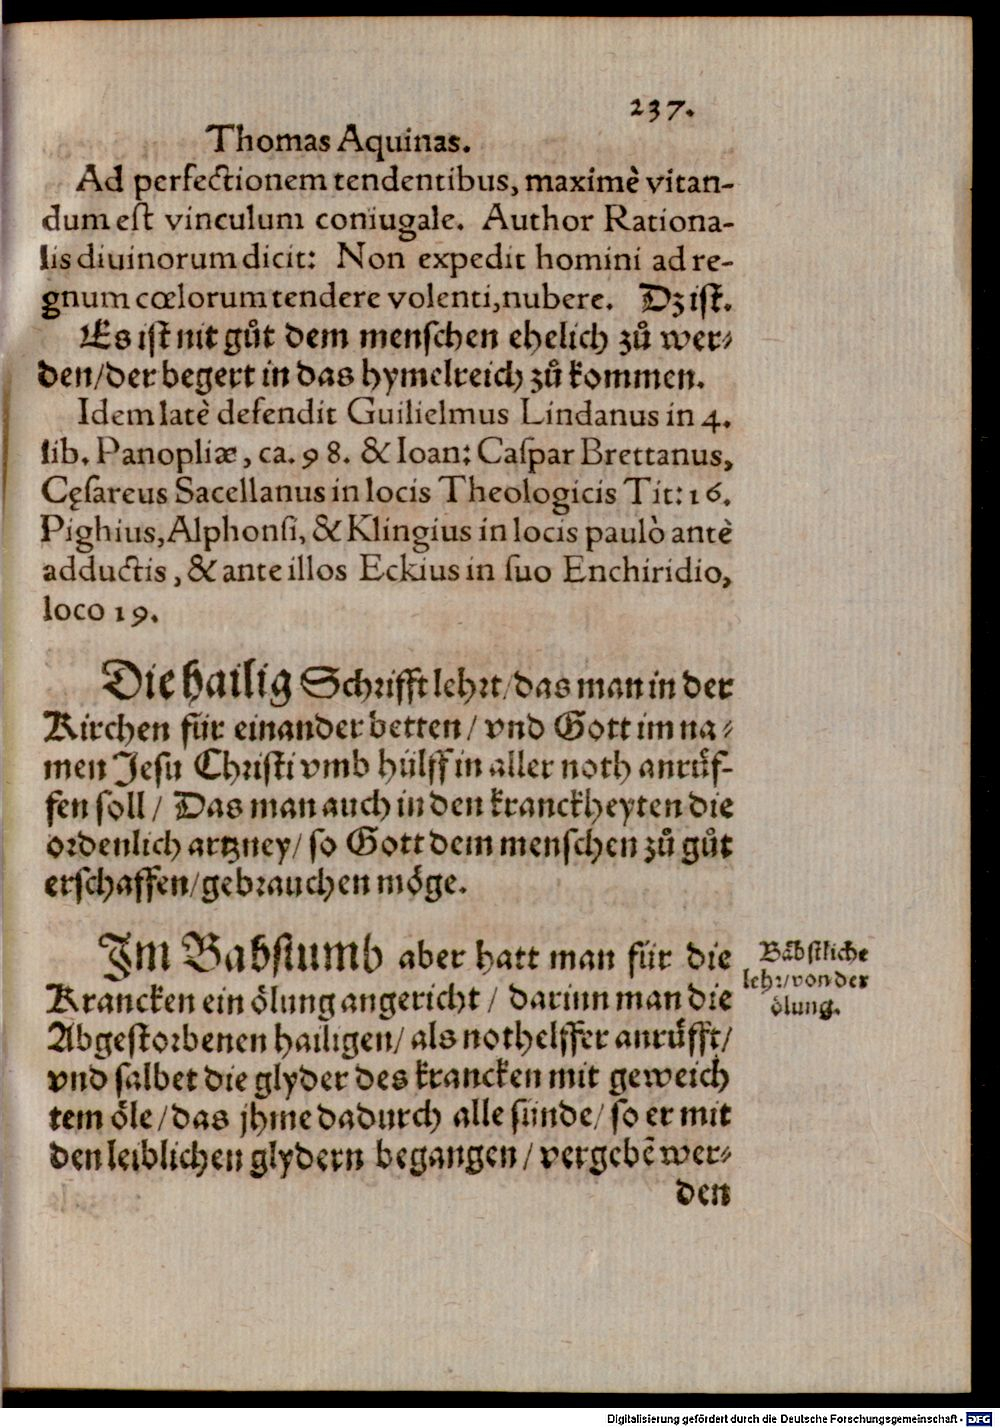 237.
Thomas Aquinas.
Ad perfectionem tendentibus, maximè vitan-
dum est vinculum coniugale. Author Rationa-
lis diuinorum dicit: Non expedit homini ad re-
gnum cœlorum tendere volenti, nubere. Dz ist.
Es ist nit gůt dem menschen ehelich zů wer-
den/der begert in das hymelreich zů kommen.
Idem latè defendit Guilielmus Lindanus in 4.
lib. Panopliæ, ca. 98. & Ioan: Caspar Brettanus,
Cęsareus Sacellanus in locis Theologicis Tit: 16.
Pighius, Alphonsi, & Klingius in locis paulò antè
adductis, & ante illos Eckius in suo Enchiridio,
loco 19.
Die hailig Schrifft lehrt/das man in der
Kirchen für einander betten/ vnd Gott im na-
men Jesu Christi vmb hülff in aller noth anrůf-
fen soll/ Das man auch in den kranckheyten die
ordenlich artzney/ so Gott dem menschen zů gůt
erschaffen/gebrauchen möge.
Im Babstumb aber hatt man für die
Krancken ein ölung angericht/ darinn man die
Abgestorbenen hailigen/ als nothelffer anrůfft/
vnd salbet die glyder des krancken mit geweich
tem öle/das jhme dadurch alle sünde/ so er mit
den leiblichen glydern begangen/ vergebẽ wer-
den
Bäbstliche
lehr/von der
ölung.
Digitalisierung gefördert durch die Deutsche Forschungsgemeinschaft - DFG